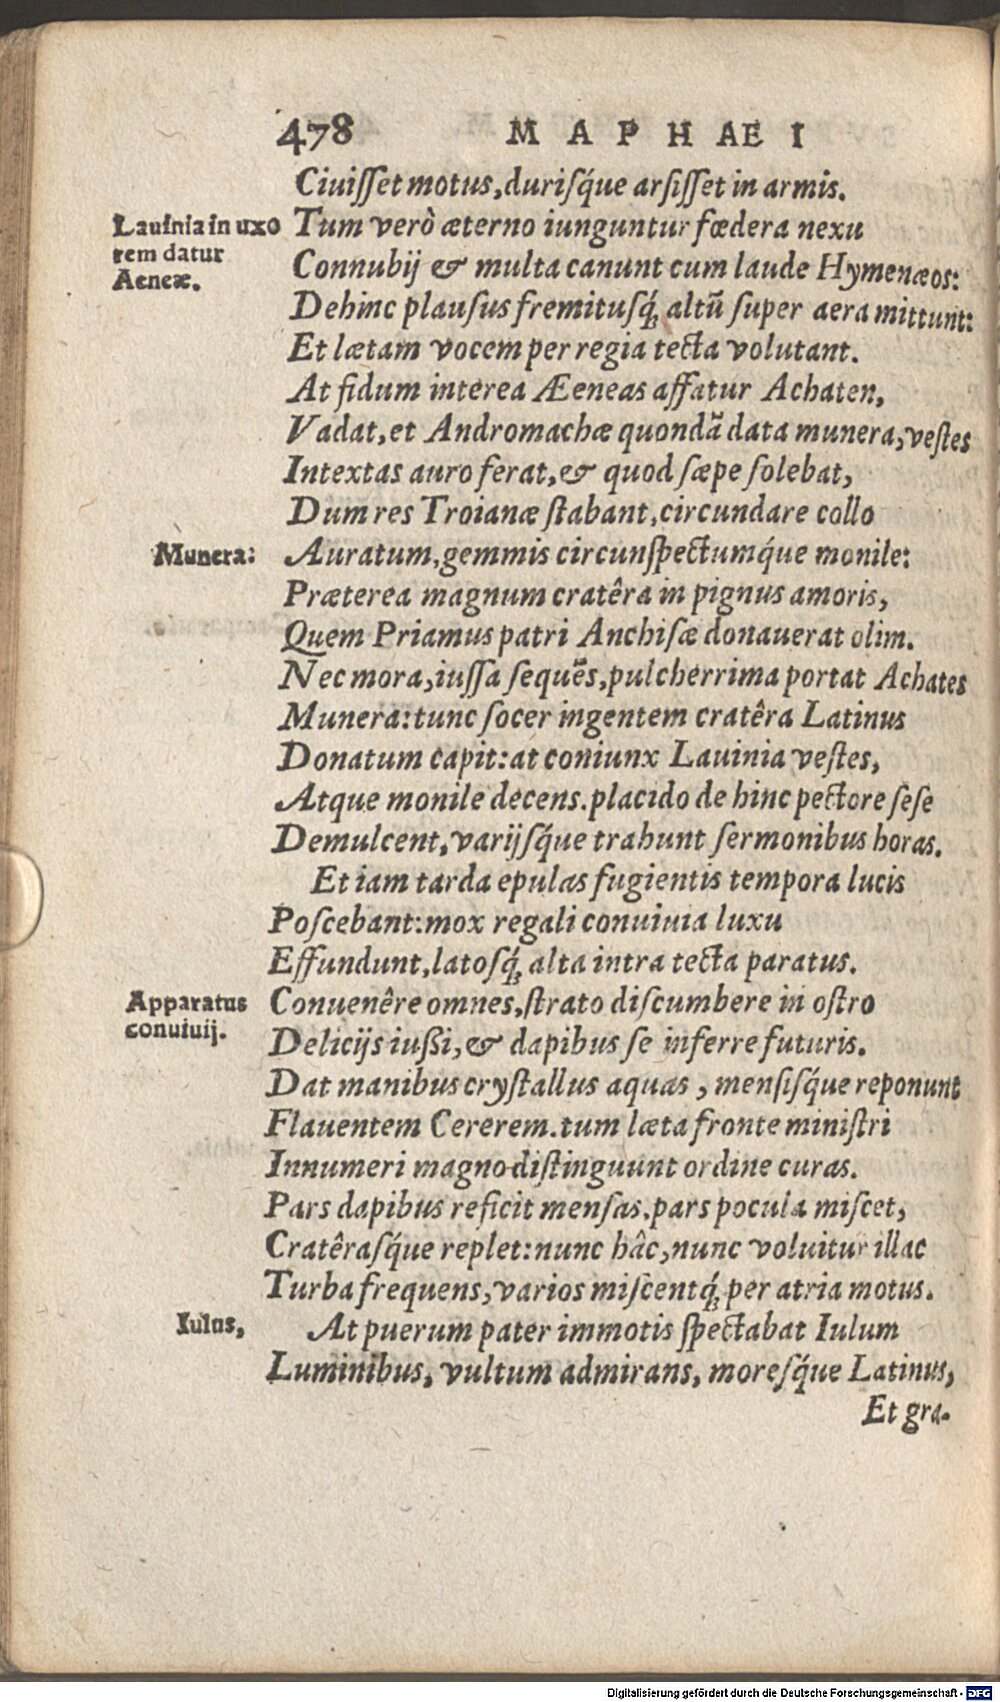 478 MAPHAEI
Ciuiſſet motus, duriſq́ue arſiſſet in armis.
Lauinia in uxo
rem datur
Aeneæ.
Tum verò æterno iunguntur fœdera nexu
Connubij & multa canunt cum laude Hymenæos:
Dehinc plauſus fremituſq́; altū ſuper aera mittunt:
Et lætam vocem per regia tecta volutant.
At fidum interea Æeneas affatur Achaten,
Vadat, et Andromachæ quondā data munera, veſtes
Intextas auro ferat, & quod ſæpe ſolebat,
Dum res Troianæ ſtabant, circundare collo
Munera:
Auratum, gemmis circunſpectumq́ue monile:
Præterea magnum cratêra in pignus amoris,
Quem Priamus patri Anchiſæ donauerat olim.
Nec mora, iuſſa ſequēs, pulcherrima portat Achates
Munera: tunc ſocer ingentem cratêra Latinus
Donatum capit: at coniunx Lauinia veſtes,
Atque monile decens. placido de hinc pectore ſeſe
Demulcent, varijſq́ue trahunt ſermonibus horas.
Et iam tarda epulas fugientis tempora lucis
Poſcebant: mox regali conuiuia luxu
Effundunt, latoſq́; alta intra tecta paratus.
Apparatus
conuiuij.
Conuenêre omnes, ſtrato diſcumbere in oſtro
Delicijs iußi, & dapibus ſe inferre futuris.
Dat manibus cryſtallus aquas, menſiſq́ue reponunt
Flauentem Cererem. tum læta fronte miniſtri
Innumeri magno diſtinguunt ordine curas.
Pars dapibus reficit menſas, pars pocula miſcet,
Cratêraſq́ue replet: nunc hâc, nunc voluitur illac
Turba frequens, varios miſcentq́; per atria motus.
Iulus,
At puerum pater immotis ſpectabat Iulum
Luminibus, vultum admirans, moreſq́ue Latinus,
Et gra-
Digitalisierung gefördert durch die Deutsche Forschungsgemeinschaft - DFG